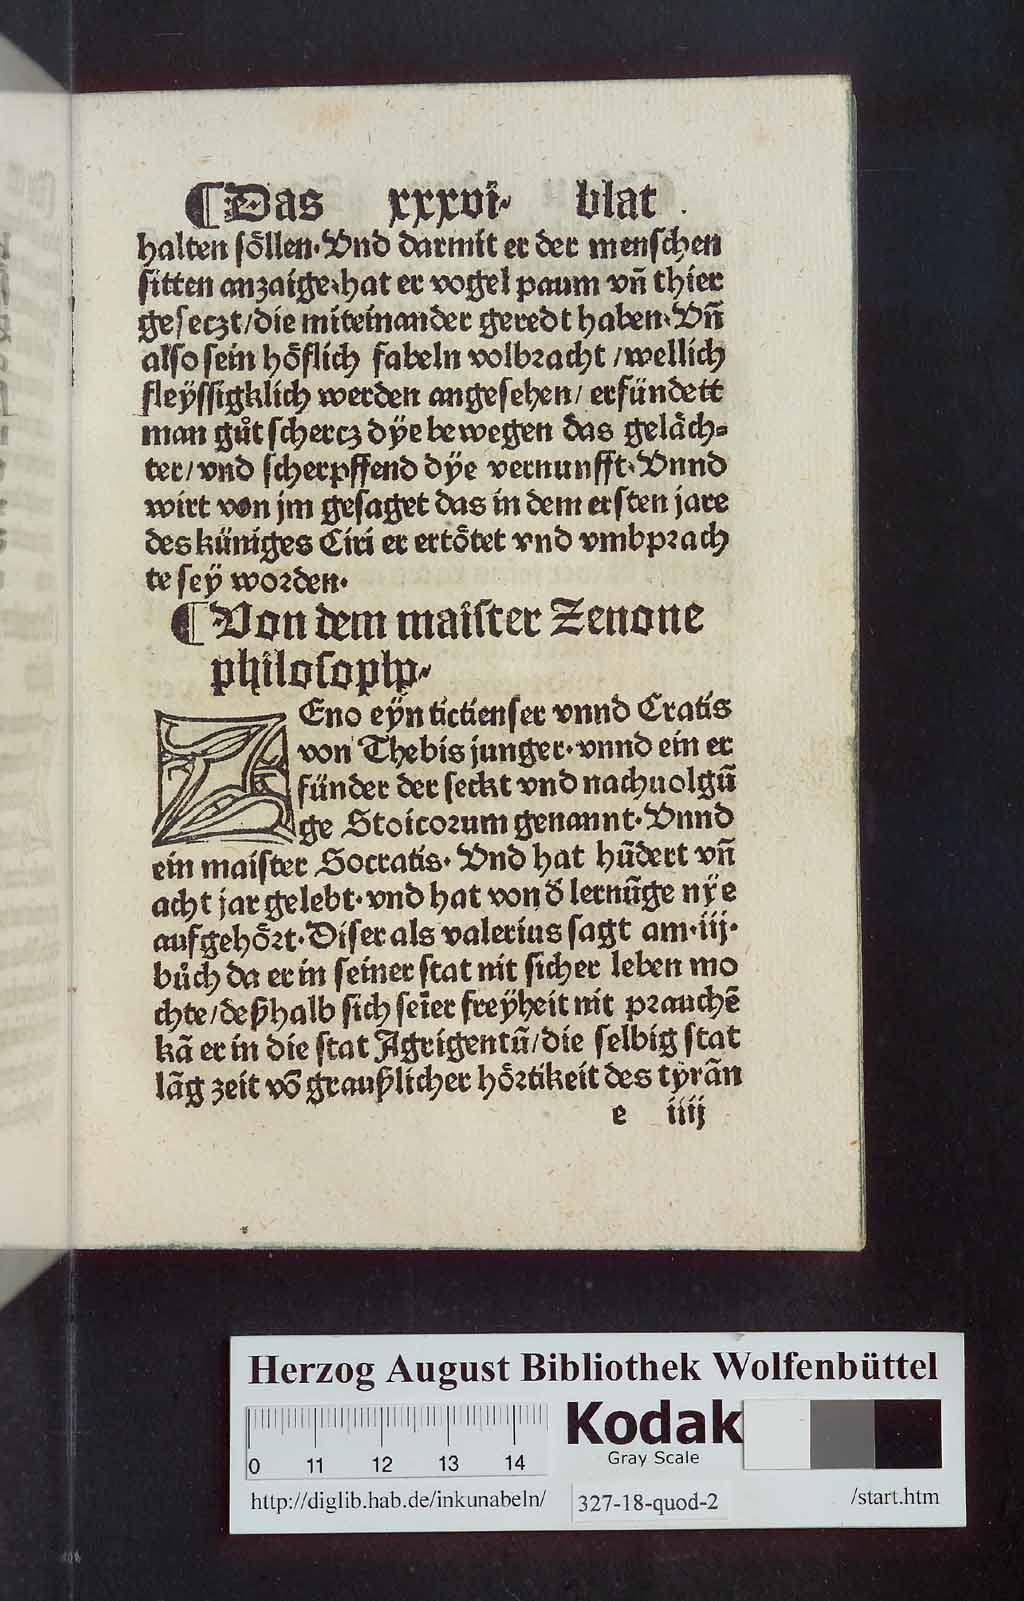 ¶Das xxxvi. blat
halten sŏllen. Vnd darmit er der menschen
sitten anzaige/hat er vogel paum vñ thier
geseczt/die miteinander geredt haben. Vñ
also sein hŏflich fabeln volbꝛacht /wellich
fleÿssigklich werden angesehen/ erfündett
man gůt schercz dÿe bewegen das gelåch⸗
ter/vnd scherpffend dÿe vernunfft. Vnnd
wirt von jm gesaget das in dem ersten jare
des küniges Ciri er ertŏtet vnd vmbpꝛach
te seÿ woꝛden.
¶Von dem maister Zenone
philosopho.
ZEno eÿn tictienser vnnd Cratis
von Thebis junger. vnnd ein er
fünder der seckt vnd nachuolgū
ge Stoicoꝛum genannt. Vnnd
ein maister Socratis. Vnd hat hūdert vñ
acht jar gelebt. vnd hat von d̕ lernūge nÿe
aufgehŏꝛt. Diser als valerius sagt am .iij.
bůch da er in seiner stat nit sicher leben mo
chte/deßhalb sich seīer freÿheit nit pꝛauchē
kā er in die stat Agrigentū/die selbig stat
lāg zeit vō graußlicher hŏꝛtikeit des tÿrāñ
e iiij
Herzog August Bibliothek Wolfenbüttel
0 11 12 13 14
Kodak
Gray Scale
http://diglib.hab.de/inkunabeln/ 327-18-quod-2 /start.htm